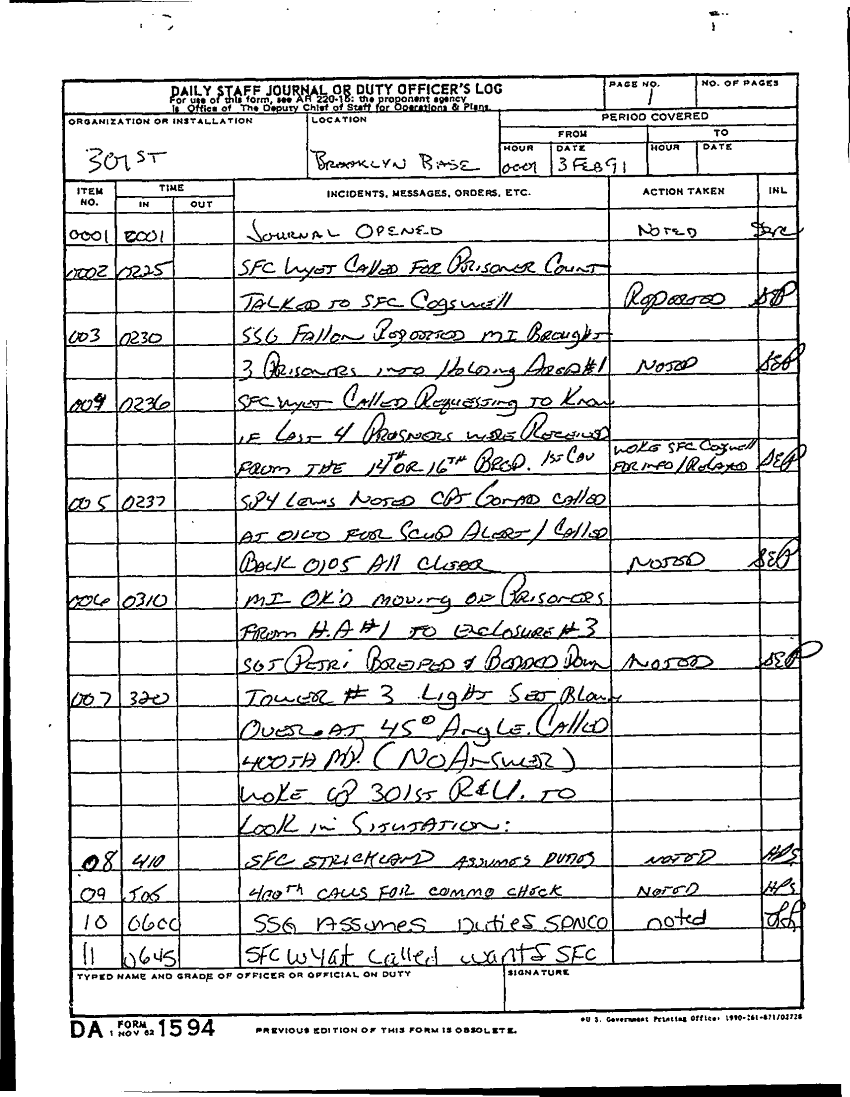 DAILY STAFF JOURNAL OR DUTY OFFICER'S LOG
For use of this form, see AR 220-15; the proponent agency
is Office of The Deputy Chief of Staff for Operations & Plans.
PAGE NO.
1
NO. OF PAGES
ORGANIZATION OR INSTALLATION
301ST
LOCATION
BROOKLYN BASE
PERIOD COVERED
FROM TO
HOUR DATE HOUR DATE
0001 3 FEB 91
ITEM NO. TIME IN OUT INCIDENTS, MESSAGES, ORDERS, ETC. ACTION TAKEN INL
0001 0001 JOURNAL OPENED NOTED
0002 0225 SFC Wyat CALLED FOR PRISONER COUNT
TALKED TO SFC Cogswell REPORTED SEP
003 0230 SSG Fallon REPORTED MI BROUGHT
3 PRISONERS INTO HOLDING AREA #1 NOTED SEP
004 0236 SFC Wyat CALLED REQUESTING TO KNOW
IF LAST 4 PROSNERS WERE RECEIVED
FROM THE 14TH OR 16TH BRGD. 1ST CAV WOKE SFC Cogswell FOR INFO / RELAYED SEP
005 0237 SP4 LEWIS NOTED CPT CONRAD CALLED
AT 0100 FOR SCUD ALERT / CALLED
BACK 0105 All CLEAR NOTED SEP
006 0310 MI OK'D MOVING OF PRISONERS
FROM H.A #1 TO ENCLOSURE #3
SGT PETRI BREIFED & BEDDED Down NOTED SEP
007 320 TOWER #3 LIGHT SET BLOWN
OVER AT 45° ANGLE. CALLED
400TH MP. (NO ANSWER)
WOKE UP 301ST R&U. TO
LOOK IN SITUTATION:
08 410 SFC STRICKLAND ASSUMES DUTIES NOTED HPS
09 505 400th CALLS FOR COMMO CHECK NOTED HPS
10 0600 SSG ASSUMES DUTIES SDNCO noted
11 0645 SFC Wyat called wants SFC
TYPED NAME AND GRADE OF OFFICER OR OFFICIAL ON DUTY
SIGNATURE
DA FORM 1 NOV 62 1594
PREVIOUS EDITION OF THIS FORM IS OBSOLETE.
U.S. Government Printing Office: 1990-261-871/02728